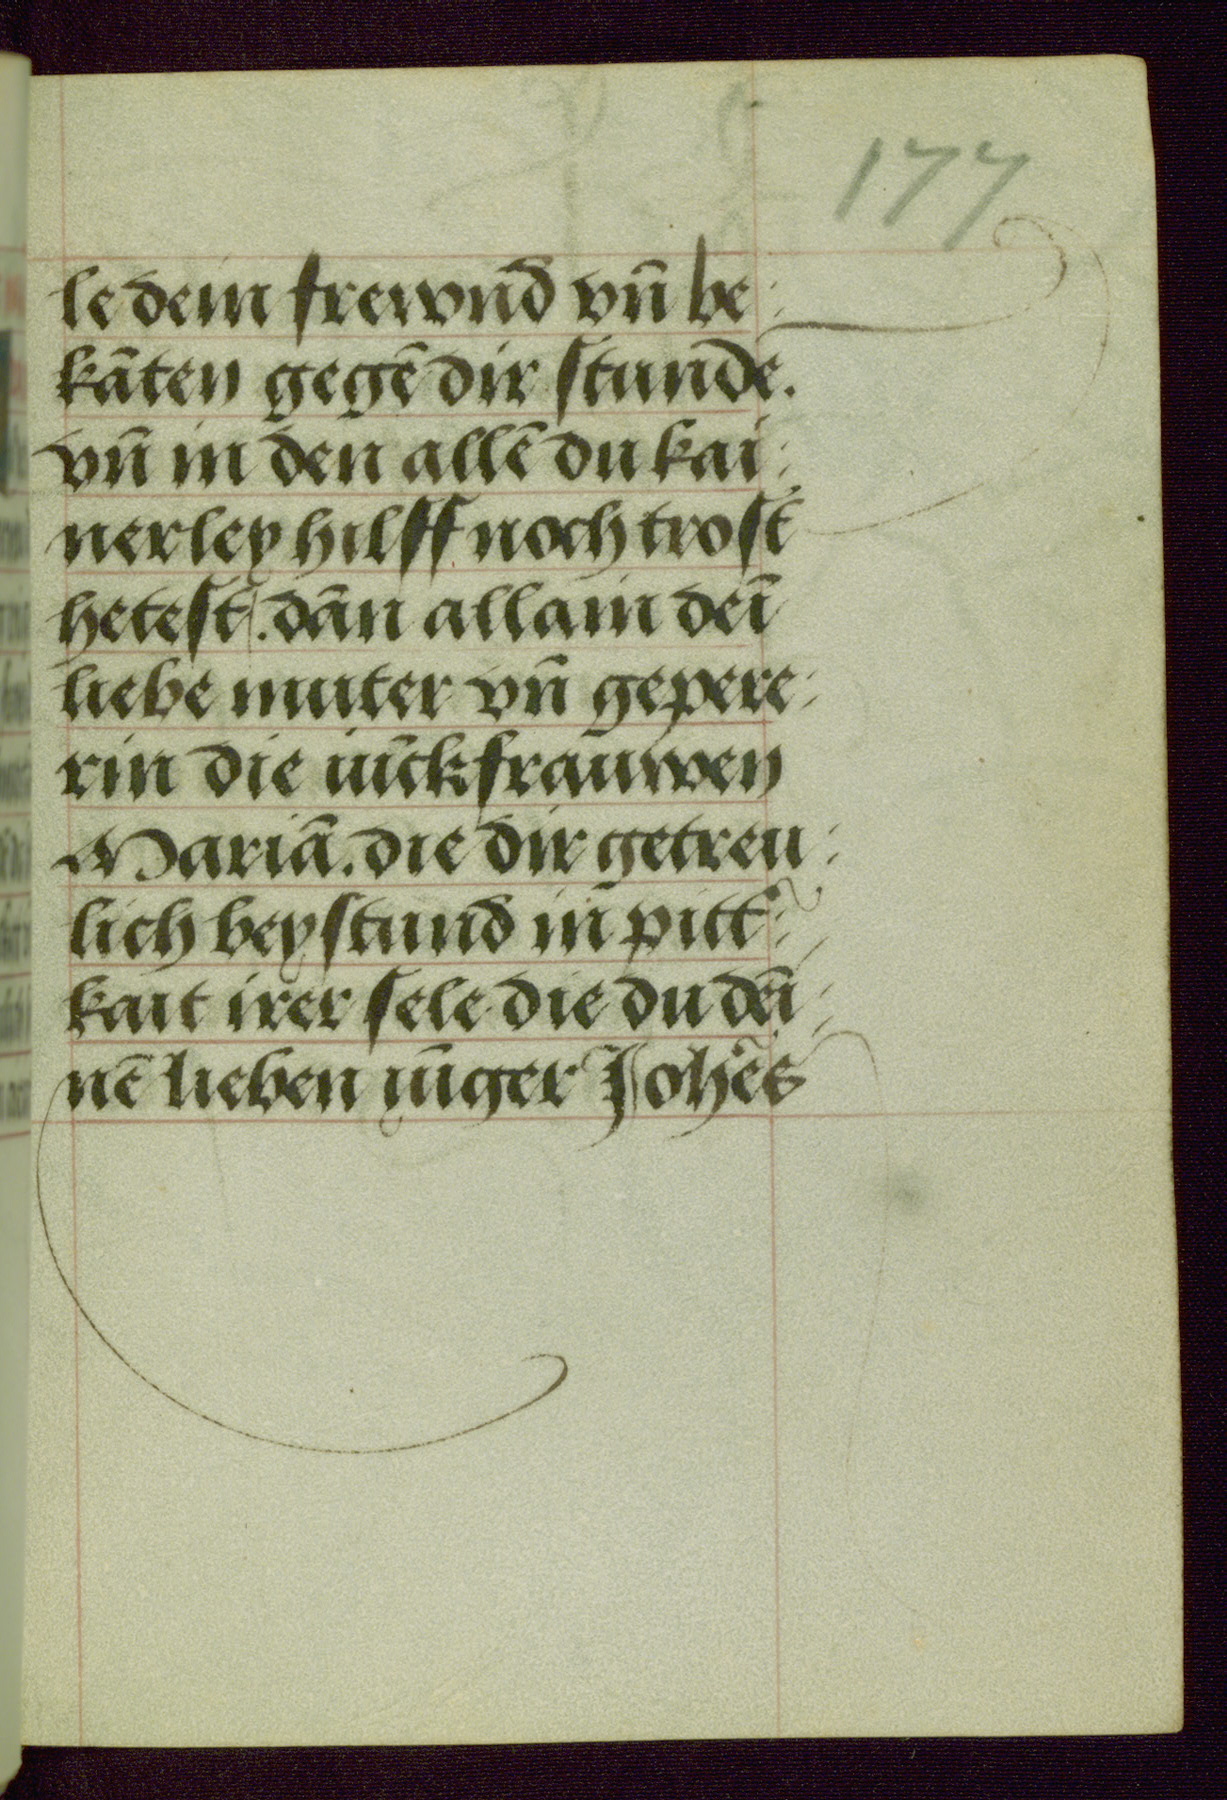 177
le dein frewnd vn̄ be:
kāten gegē dir stunde.
vn̄ in den allē du kai:
nerley hilff noch trost
hetest. dān allain dei̅
liebe muter vn̄ gepere:
rin die iūckfrauwen
Mariā. die dir getreu:
lich beystund in̄ pitt:
kait irer sele die du dei̅:
nē lieben iūnger Joh̅es